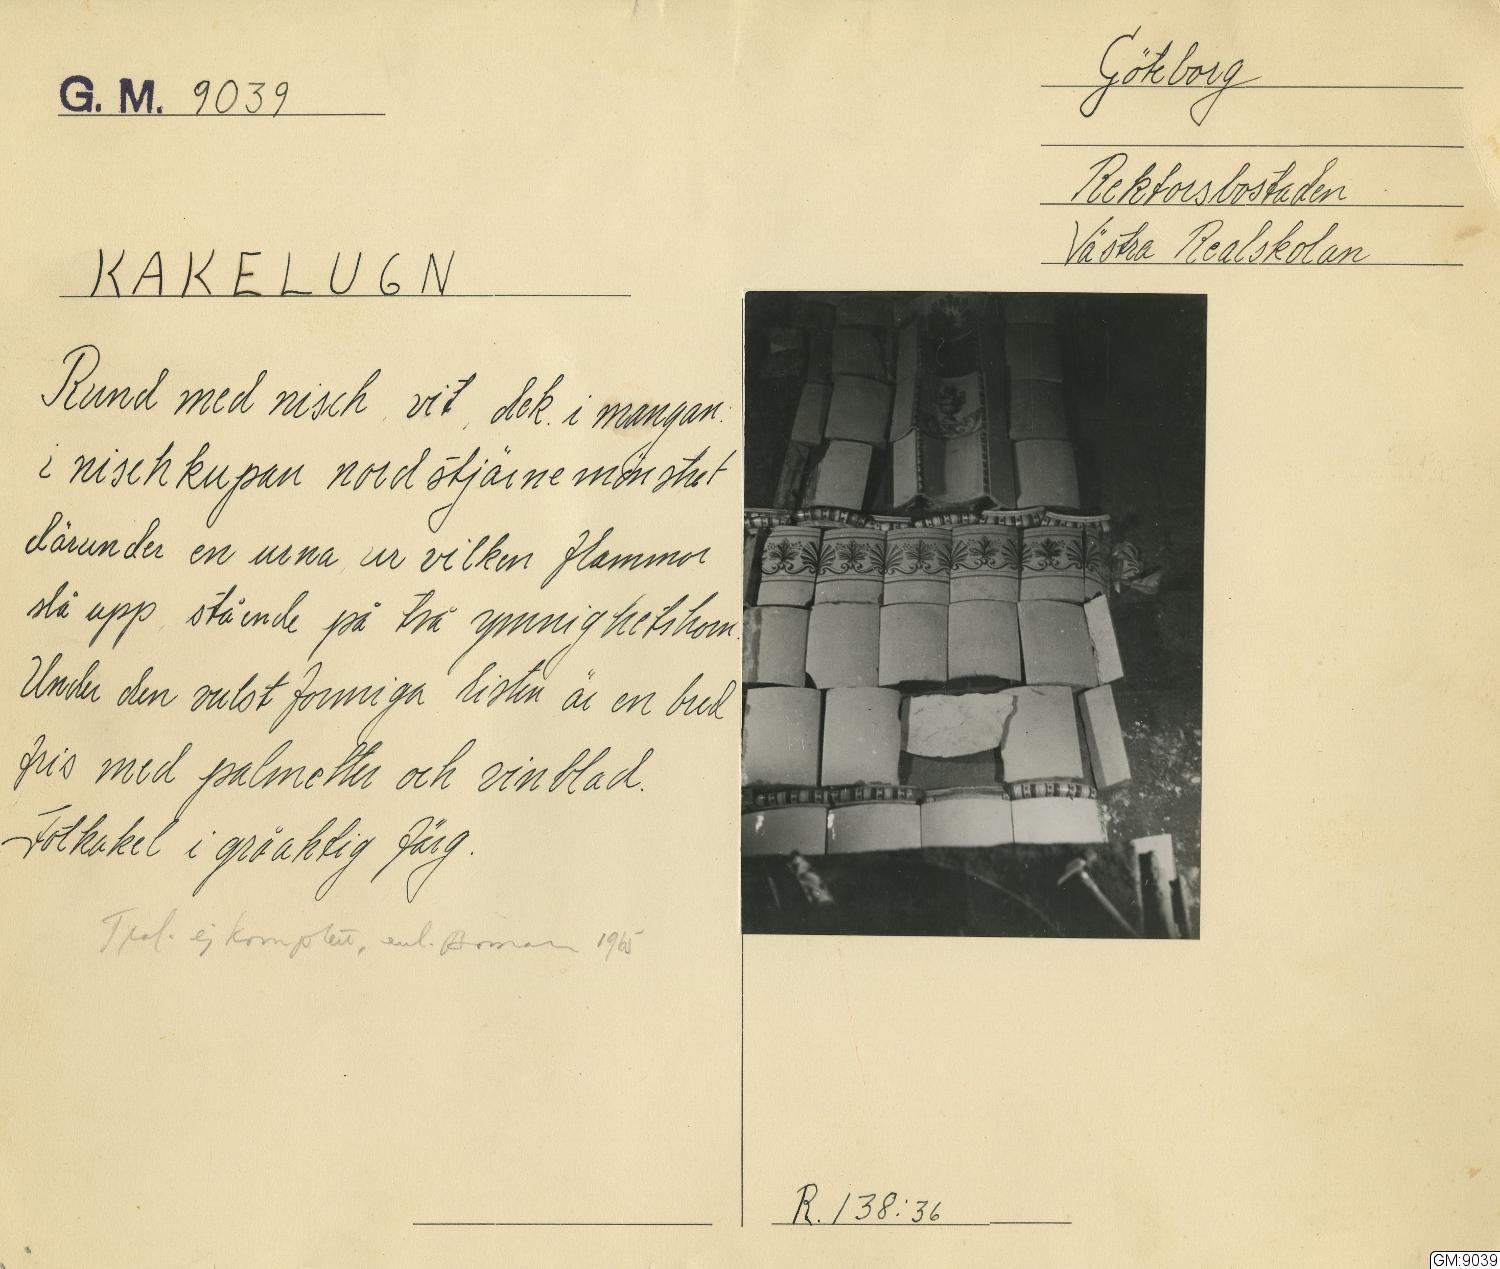 G. M. 9039
Göteborg
Rektorsbostaden
Västra Realskolan
KAKELUGN
Rund med nisch, vit, dek. i mangan.
i nischkupan nordstjärnemönstret
därunder en urna, ur vilken flammor
slå upp, stående på två ymnighetshorn.
Under den vulstformiga listen är en bred
fris med palmetter och vinblad.
Fotkakel i gråaktig färg.
ej komplett, enl. Boman 1965
R. 138:36
GM:9039